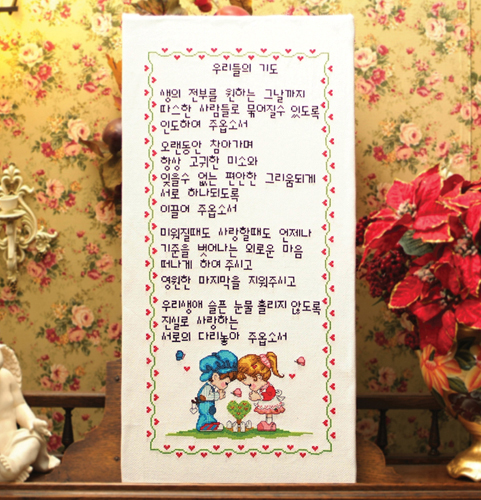 우리들의 기도
생의 전부를 원하는 그날까지
따스한 사람들로 묶여질수 있도록
인도하여 주옵소서
오랜동안 참아가며
항상 고귀한 미소와
잊을수 없는 편안한 그리움되게
서로 하나되도록
이끌어 주옵소서
미워질때도 사랑할때도 언제나
기준을 벗어나는 외로운 마음
떠나게 하여 주시고
영원한 마지막을 지워주시고
우리생애 슬픈 눈물 흘리지 않도록
진실로 사랑하는
서로의 다리놓아 주옵소서